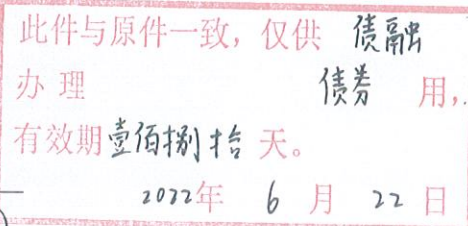 此件与原件一致，仅供 债融
办 理 债券 用，
有效期壹佰捌拾 天。
2022年 6 月 22 日